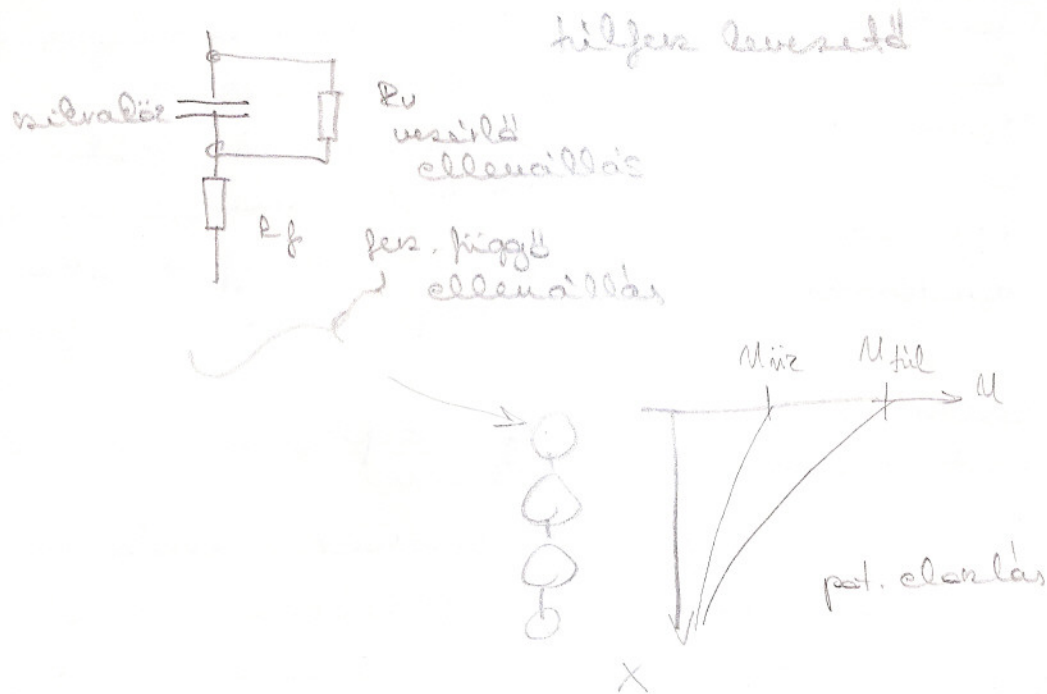 túlfesz levezető
szikraköz
Rv
vezérlő
ellenállás
Rf
fesz. függő
ellenállás
Uüz
Utúl
U
pot. eloszlás
X